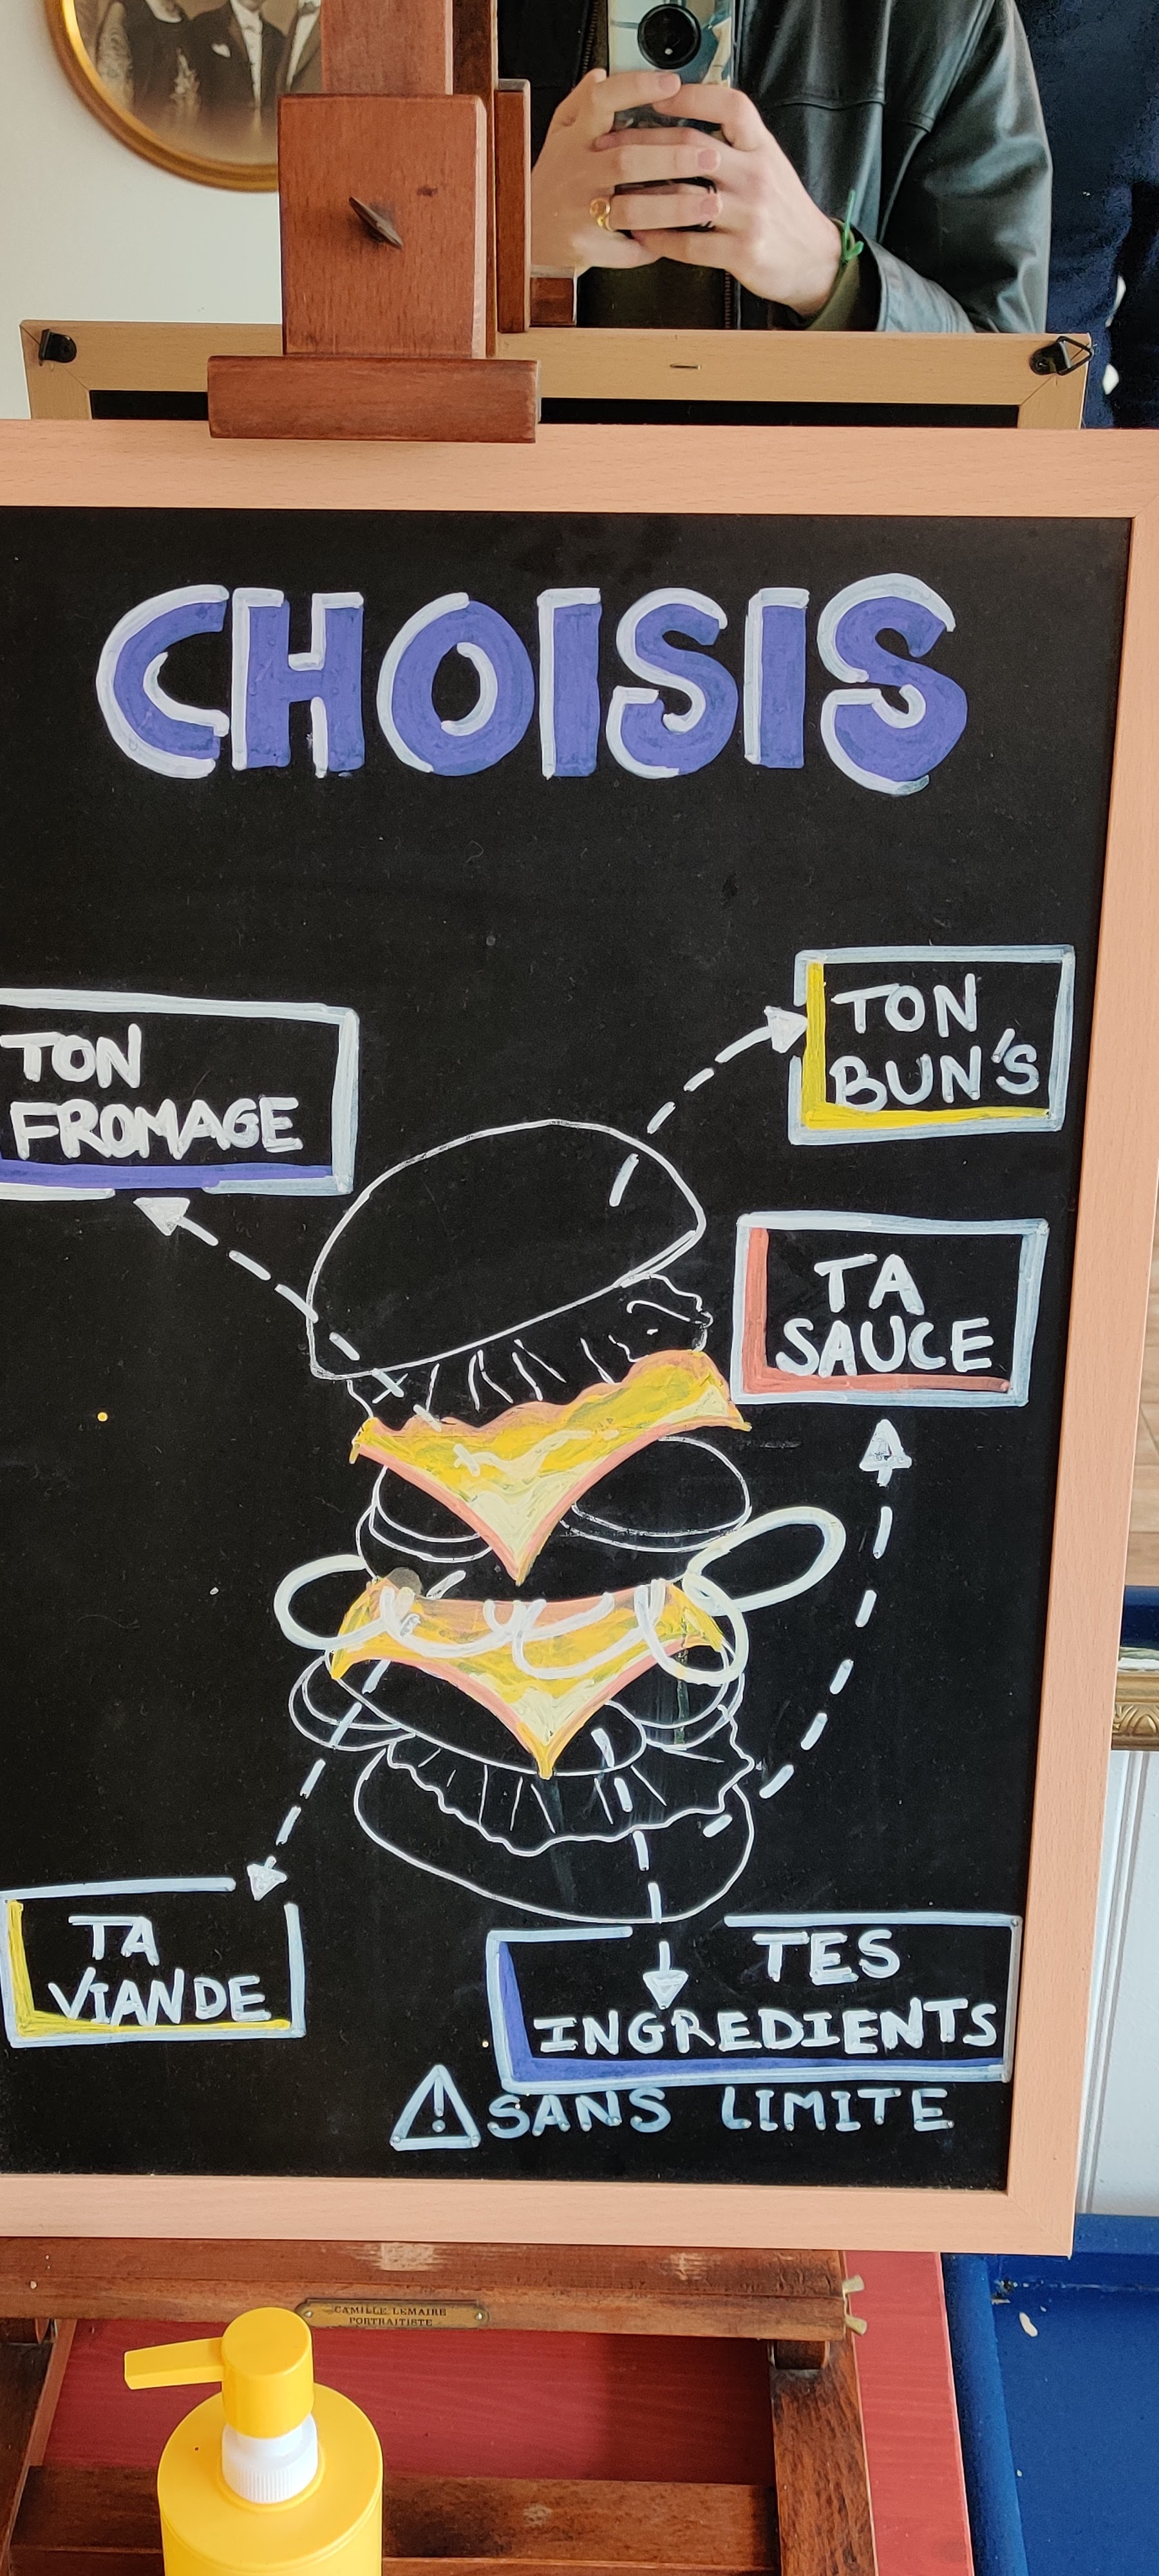 CHOISIS
TON
BUN'S
TON
FROMAGE
TA
SAUCE
TA
VIANDE
TES
INGREDIENTS
SANS LIMITE
CAMILLE LEMAIRE
PORTRAITISTE